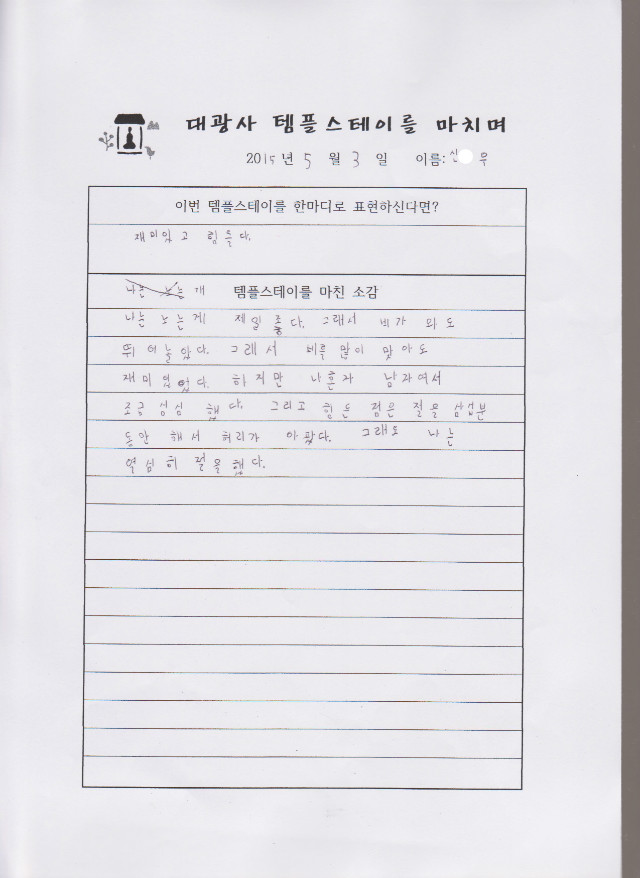 대광사 템플스테이를 마치며
2015 년 5 월 3 일 이름: 신 우
이번 템플스테이를 한마디로 표현하신다면?
재미있고 힘들다.
나는 노는개 템플스테이를 마친 소감
나는 노는게 제일 좋다. 그래서 비가 와도
뛰어놀았다. 그래서 비를 많이 맞아도
재미있었다. 하지만 나혼자 남자여서
조금 싱심 했다. 그리고 힘든 점은 절을 삼십분
동안 해서 허리가 아팠다. 그래도 나는
열심히 절을 했다.